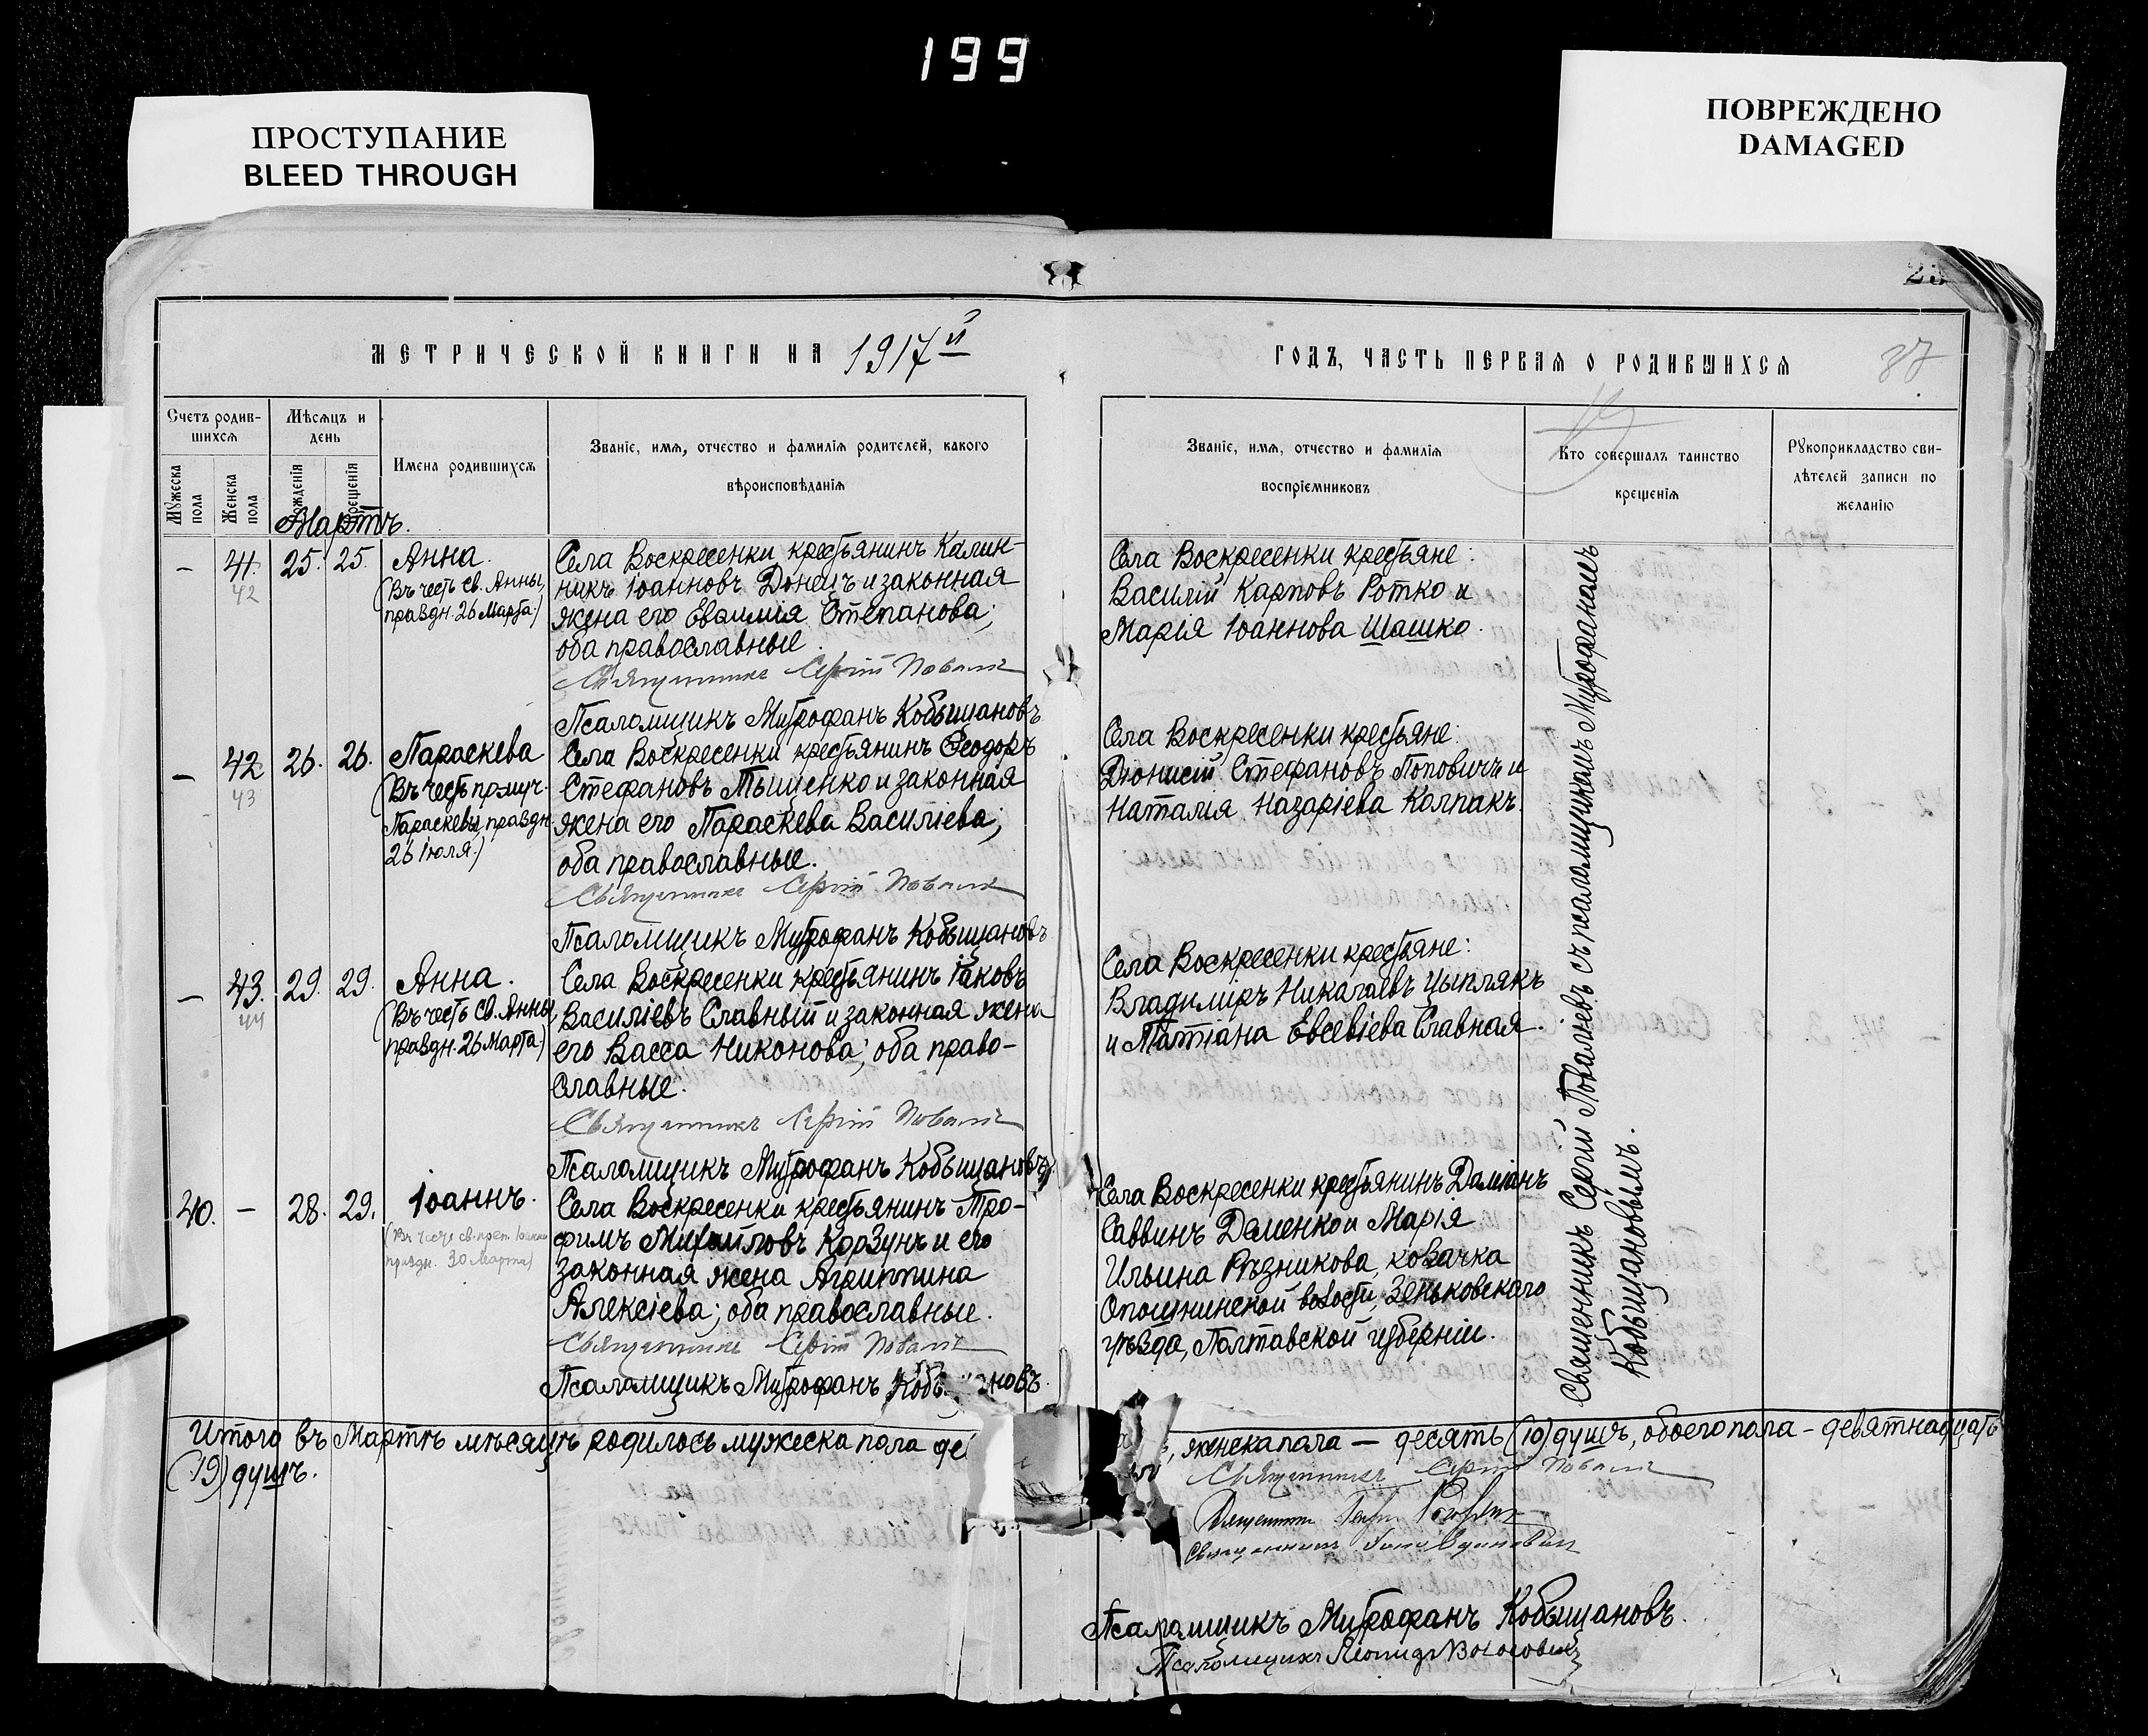 199
ПРОСТУПАНИЕ
BLEED THROUGH
ПОВРЕЖДЕНО
DAMAGED
МЕТРИЧЕСКОЙ КНИГИ НА 1917й
ГОДЪ, ЧАСТЬ ПЕРВАЯ О РОДИВШИХСЯ
37
Счетъ родив-
шихся
Мужеска пола
Женска пола
Мѣсяцъ и
день
рожденія
крещенія
Имена родившихся
Званіе, имя, отчество и фамилія родителей, какого
вѣроисповѣданія
Званіе, имя, отчество и фамилія
воспріемниковъ
Кто совершалъ таинство
крещенія
Рукоприкладство сви-
дѣтелей записи по
желанію
Мартъ.
– 41. 25. 25. Анна.
42
(Въ честь св. Анны,
праздн. 26 Марта.)
Села Воскресенки крестьянинъ Калик-
никъ Іоанновъ Донецъ и законная
жена его Евѳимія Степанова;
оба православные.
Священникъ Сергій
Псаломщикъ Митрофанъ Кобыщановъ
Села Воскресенки крестьяне:
Василій Карповъ Ротко и
Марія Іоаннова Шашко.
– 42 26. 26. Параскева
43
(Въ честь прмуч.
Параскевы, праздн.
26 Іюля.)
Села Воскресенки крестьянинъ Ѳеодоръ
Стефановъ Тыщенко и законная
жена его Параскева Василіева;
оба православные.
Священникъ Сергій
Псаломщикъ Митрофанъ Кобыщановъ
Села Воскресенки крестьяне:
Діонисій Стефановъ Поповичъ и
Наталія Назаріева Колпакъ.
– 43. 29. 29. Анна.
44
(Въ честь св. Анны,
праздн. 26 Марта.)
Села Воскресенки крестьянинъ Іаковъ
Василіевъ Славный и законная жена
его Васса Никонова; оба право-
славные.
Священникъ Сергій
Псаломщикъ Митрофанъ Кобыщановъ
Села Воскресенки крестьяне:
Владиміръ Николаевъ Цыплякъ
и Татіана Евсевіева Славная.
40. – 28. 29. Іоаннъ.
праздн. 30 Марта)
Села Воскресенки крестьянинъ Тро-
фимъ Михайловъ Корзунъ и его
законная жена Агриппина
Алексіева; оба православные.
Священникъ Сергій
Псаломщикъ Митрофанъ
Села Воскресенки крестьянинъ Даміанъ
Саввинъ Деменко и Марія
Ильина Рѣзникова, козачка
Опошнинской волости, Зеньковскаго
уѣзда, Полтавской губерніи.
Священникъ Сергій съ псаломщикомъ Митрофаномъ
Кобыщановымъ.
Итого въ Мартѣ мѣсяцѣ родилось мужеска пола
, женска пола – десять (10) душъ, обоего пола – девятнадцать
(19) душъ.
Священникъ Сергій
Священникъ
Священникъ
Псаломщикъ Митрофанъ Кобыщановъ.
Псаломщикъ Леонидъ